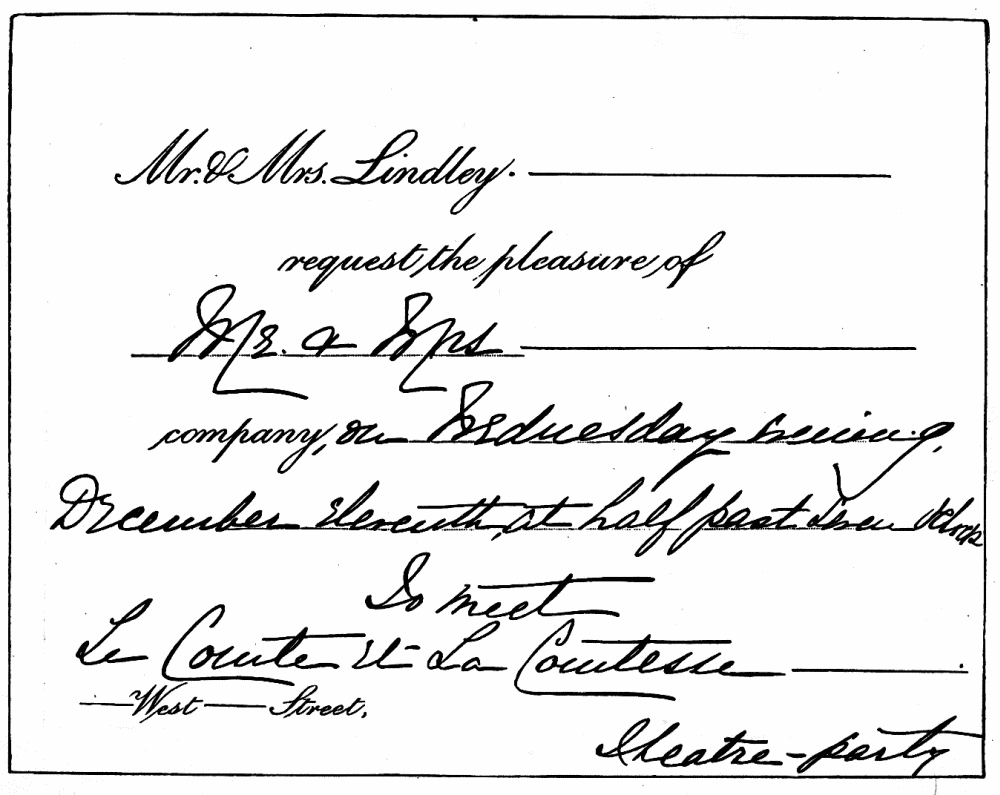 Mr. & Mrs. Lindley. ————
request the pleasure of
Mr. & Mrs ————
company, on Wednesday evening,
December eleventh, at half past seven o'clock
To meet
Le Comte et La Comtesse ————
— West — Street.
Theatre-party